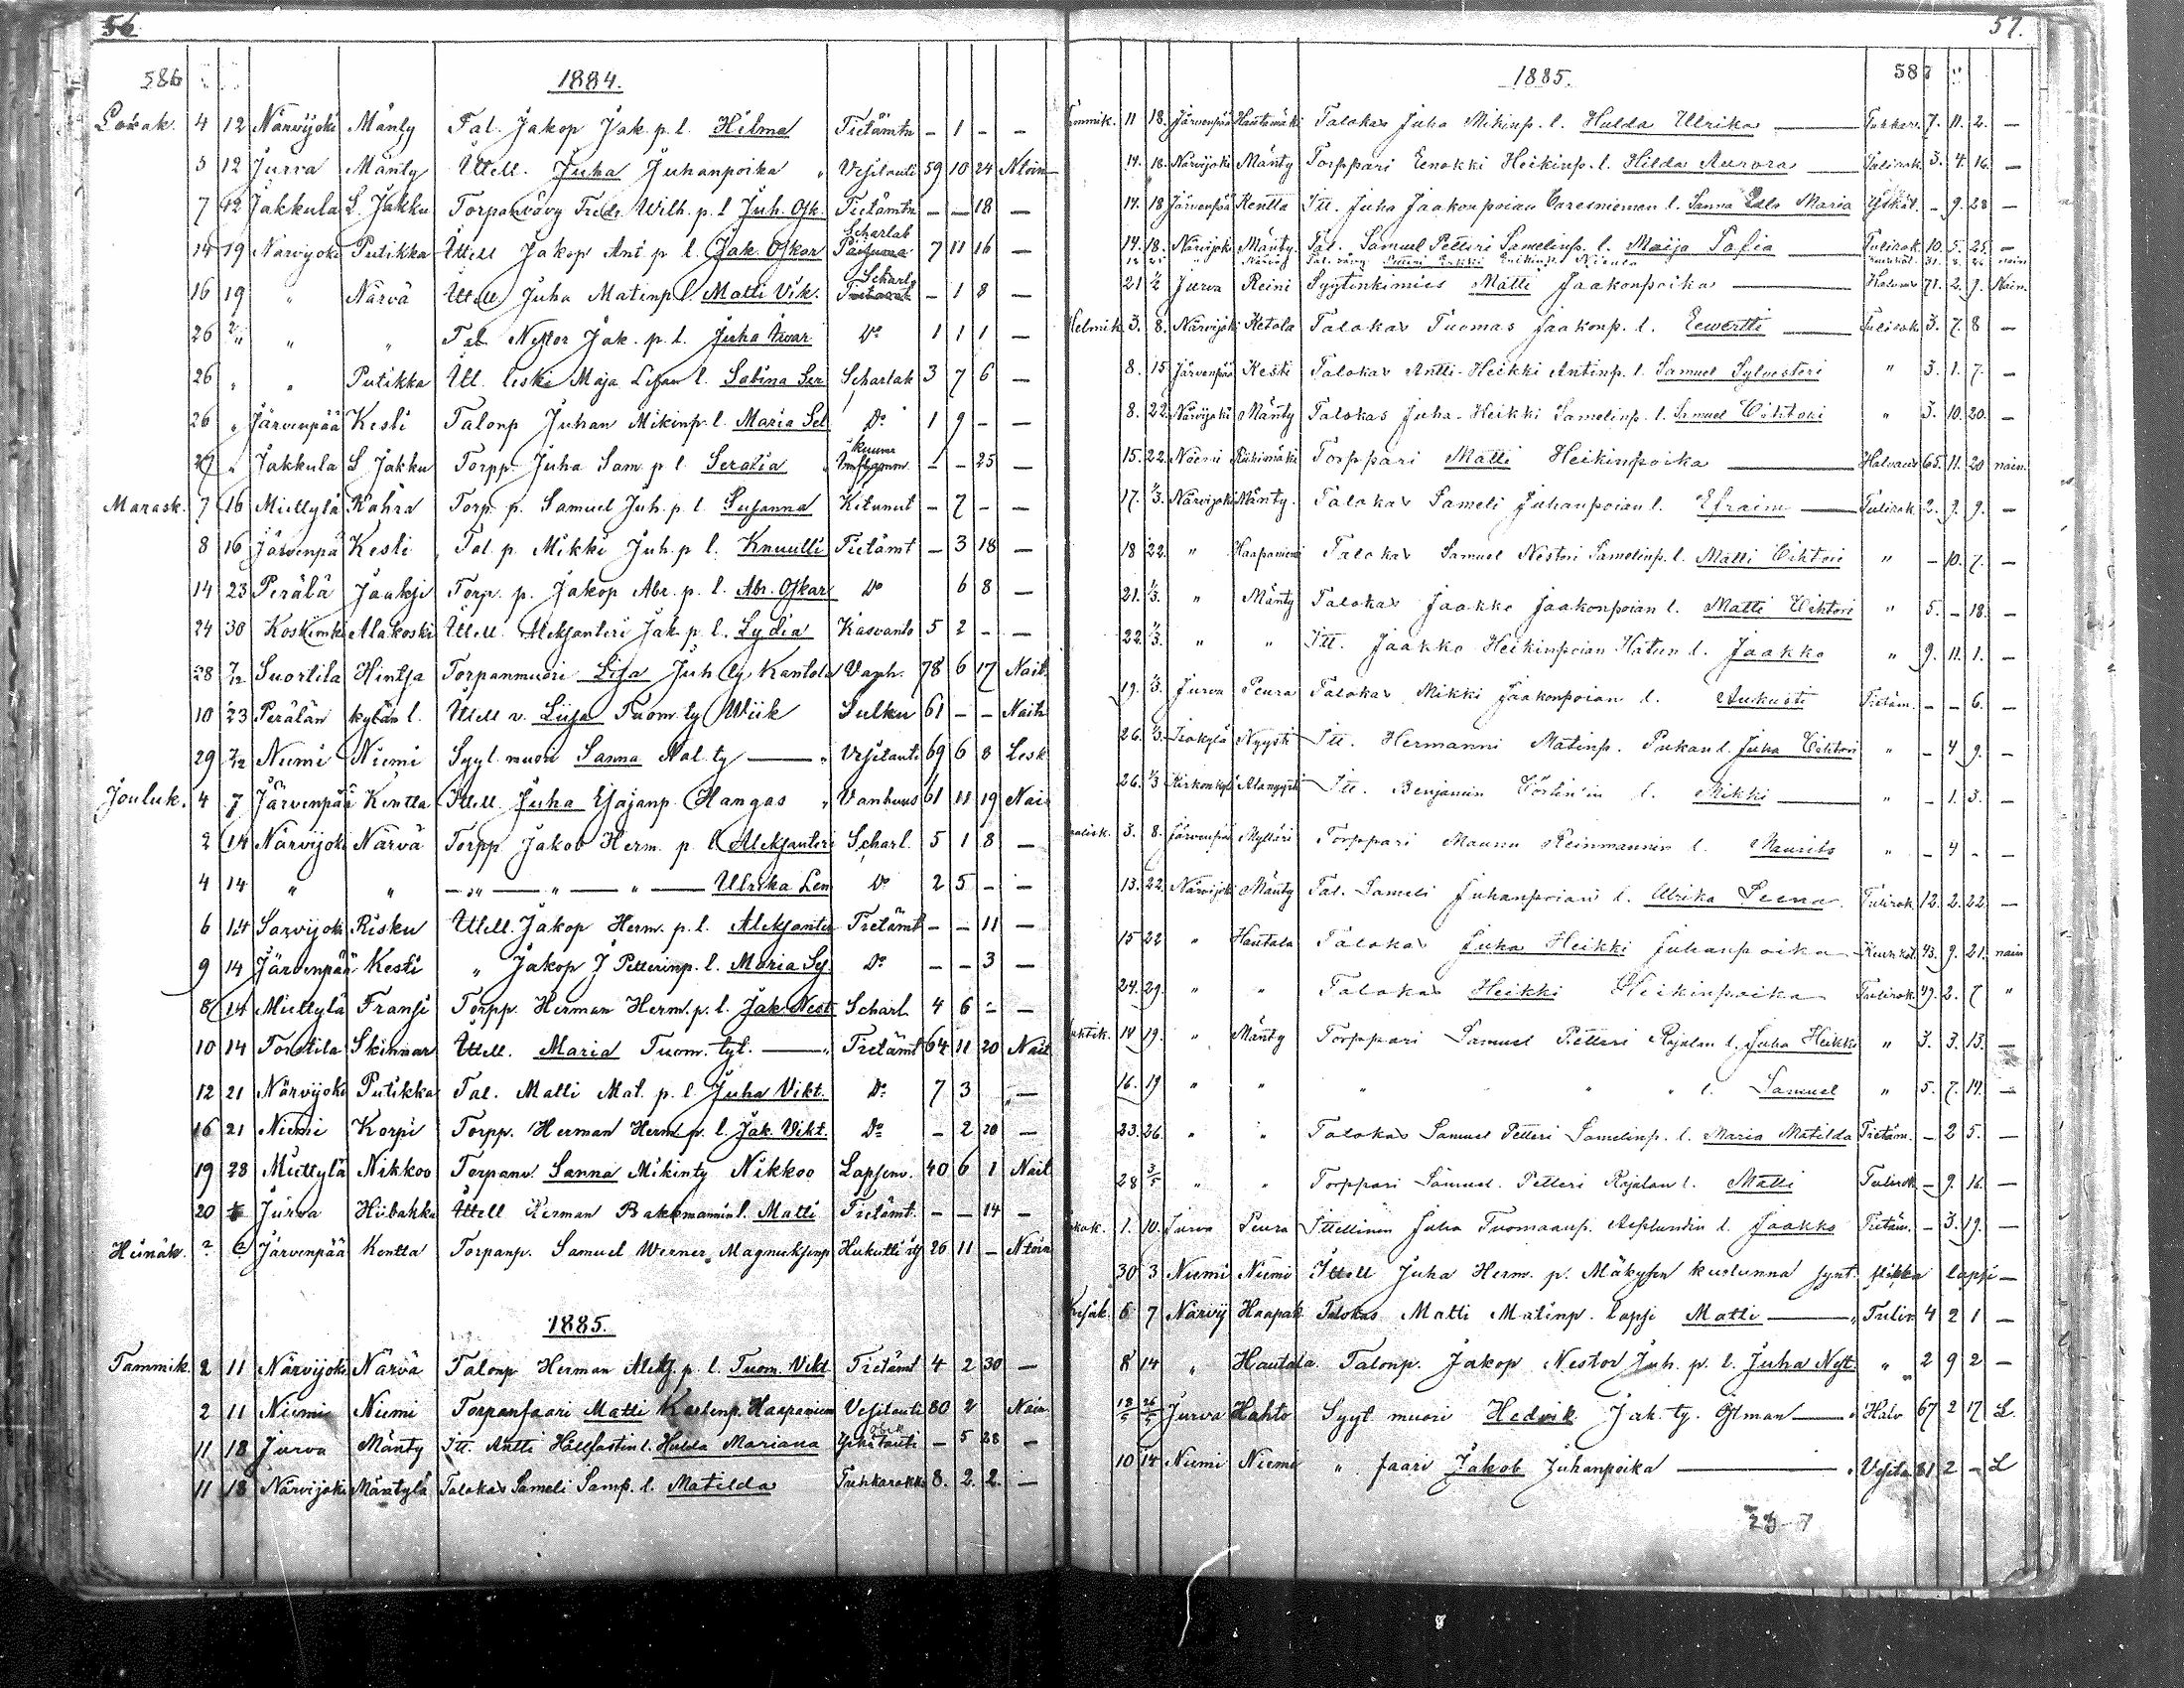 56
586 1884.
Lokak. 4 12 Närvijoki Mänty Tal. Jakop Jak. p. l. Hilma Tietämtn — 1 — —
5 12 Jurva Mänty Ittell. Juha Juhanpoika " Vesitauti 59 10 24 Ntoin
7 12 Jakkula L. Jakku Torpanvävy Fredr Wilh. p. l Juh. Osk. Tietämtn — — 18 —
14 19 Närvijoki Putikka Ittell Jakop Ant. p l. Jak. Oskar Scharlak 7 11 16 —
16 19 " Närvä Ittell Juha Matinp l. Matti Vik. Scharl — 1 8 —
26 " " " Tal. Nestor Jak. p. l. Juha Ivar Do 1 1 1 —
26 " " Putikka Itt. leski Maja Lisan l. Sabina Ser Scharlak 3 7 6 —
26 " Järvenpää Kesti Talonp Juhan Mikinp. l. Maria Sel Do 1 9 — —
27 " Jakkula L Jakku Torpp. Juha Sam. p l. Serafia kuume — — 25 —
Marask. 7 16 Miettylä Kahra Torp. p. Samuel Juh. p l. Susanna Kitunut — 7 — —
8 16 Järvenpä Kesti Tal. p. Mikki Juh. p l. Knuutti Tietämt — 3 18 —
14 23 Perälä Jaakji Torp. p. Jakop Abr. p. l. Abr. Oskar Do 6 8 —
24 30 Koskimki Alakoski Ittell. Aleksanteri Jak. p l. Lydia Kasvanto 5 2 — —
28 7/12 Suortila Hintsa Torpanmuori Lisa Juh ty Kantola Vanh. 78 6 17 Nait.
10 23 Perälän kylän l. Ittell v. Liisa Tuom. ty Wiik Sulku 61 — — Nait
29 7/12 Niemi Niemi Syyt. muori Sanna Mat. ty — " Vesitauti 69 6 8 Lesk
Jouluk. 4 7 Järvenpää Kentta Ittell. Juha Esajanp. Hangas " Vanhuus 61 11 19 Nai
2 14 Närvijoki Närvä Torpp Jakob Herm. p l Aleksanteri Scharl. 5 1 8 —
4 14 " " — " — " — " — Ulrika Len Do 2 5 — —
6 14 Sarvijoki Risku Ittell. Jakop Herm. p. l. Aleksanter Tietämt — — 11 —
9 14 Järvenpää Kesti " Jakop J Petterinp. l. Maria Sy. Do — — 3 —
8 14 Miettylä Fransi Torpp. Herman Herm. p. l. Jak. Nest Scharl. 4 6 — —
10 14 Tonttila Skinnar Ittell. Maria Tuom. tyt. — " Tietämt 64 11 20 Nait
12 21 Närvijoki Putikka Tal. Matti Mat. p. l Juha Vikt. Do 7 3 " —
16 21 Niemi Korpi Torpp. Herman Herm. p. l. Jak. Vikt. Do — 2 20 —
19 28 Miettylä Nikkoo Torpanv. Sanna Mikinty Nikkoo Lapsenv. 40 6 1 Nait
20 Jurva Hiibakka Ittell Herman Bakkmannin l. Matti Tietämt. — — 14 —
Heinäk. ? ? Järvenpää Kentta Torpanp. Samuel Werner Magnuksenp Hukutti itj 26 11 — Ntoin
1885.
Tammik. 2 11 Närvijoki Närvä Talonp Herman Aleks. p. l. Tuom. Vikt Tietämt 4 2 30 —
2 11 Niemi Niemi Torpanfaari Matti Haapanien Vesitauti 80 2 Nain
11 18 Jurva Mänty Itt. Antti Hällfastin l. Hulda Mariana — 5 28 —
11 18 Närvijoki Mäntylä Talokas Sameli Samp. l. Matilda Tuhkarokko 8. 2. 2. —
57.
1885. 587
Tammik. 11 18. Järvenpää Hautamäki Talokas Juha Mikinp. l. Hulda Ulrika — Tuhkar. 7. 11. 2. —
14. 18. Närvijoki Mänty Torppari Eenokki Heikinp. l. Hilda Aurora — Tulirok. 3. 4. 16. —
14. 18 Järvenpää Kentta Itt. Juha Jaakonpoian l. Sanna Maria — 9. 28 —
14. 18. Närvijoki Mänty. Tal. Samuel Petteri Samelinp. l. Maija Sofia Tulirok. 10. 5. 25. —
21 1/2 Jurva Reini Syytinkimies Matti Jaakonpoika — 71. 2. 9. Nain.
Helmik. 3. 8. Närvijoki Ketola Talokas Tuomas Jaakonp. l. Eewertti — Tulirok 3. 7. 8 —
8. 15 Järvenpää Kesti Talokas Antti-Heikki Antinp. l. Samuel Sylvesteri " 3. 1. 7. —
8. 22. Närvijoki Mänty Talokas Juha-Heikki Samelinp. l. Samuel Wihtori " 3. 10. 20. —
15. 22. Niemi Riihimäki Torppari Matti Heikinpoika — Halvaus 65. 11. 20 nain.
17. 1/3. Närvijoki Mänty. Talokas Sameli Juhanpoian l. Efraim — Tulirok 2. 9. 9. —
18 22. " Haapaniemi Talokas Samuel Nestori Samelinp. l. Matti Wihtori " — 10. 7. —
21. 1/3. " Mänty Talokas Jaakko Jaakonpoian l. Matti Wihtori " 5. — 18. —
22. 1/3. " " Itt. Jaakko Heikinpoian Hatun l. Jaakko " 9. 11. 1. —
19. 1/3. Jurva Peura Talokas Mikki Jaakonpoian l. Aukusti Tietäm. — — 6. —
26. 1/3. Isokylä Nyysti Itt. Hermanni Matinp. Pukan l. Juha Wihtori " — 4 9. —
26. 1/3 Kirkonkyl Alanyysti Itt. Benjamin l. Mikki — " — 1. 3. —
3. 8. Järvenpää Mylläri Torppari Maunu Reinmannin l. Maurits " — 4 — —
13. 22. Närvijoki Mänty Tal. Sameli Juhanpoian l. Ulrika Leena. Tulirok. 12. 2. 22. —
15 22 " Hautala Talokas Juha Heikki Juhanpoika — Keuhkot. 43. 9. 21. nain
24. 29. " " Talokas Heikki Heikinpoika Tulirok. 49. 2. 7 "
Huhtik. 14 19. " Mänty Torppari Samuel Petteri Rajalan l. Juha Heikki " 3. 3. 13. —
16. 19 " " " " " l. Samuel " 5. 7. 14. —
23. 26. " " Talokas Samuel Petteri Samelinp. l. Maria Matilda Tietäm. — 2 5. —
28 3/5 " " Torppari Samuel. Petteri Rajalan l. Matti Tulirok — 9. 16. —
1. 10. Jurva Peura Ittellinen Juha Tuomaanp. Asplundin l. Jaakko Tietäm. — 3. 19. —
30 3 Niemi Niemi Ittell Juha Herm. p. Mäkysen kuolunna synt. lapsi —
Kesäk. 6 7 Närvij Haapak Talokas Matti Matinp. lapsi Matti — " Tulir 4 2 1 —
8 14 " Hautala. Talonp. Jakop Nestor Juh. p. l. Juha Nest. " 2 9 2 —
18/5 26/5 Jurva Hahto Syyt. muori Hedvik Jak. ty. Ojman — " Halv 67 2 17 L.
10 14 Niemi Niemi " faari Jakob Juhanpoika — " Vesita 81 2 — L
23-7